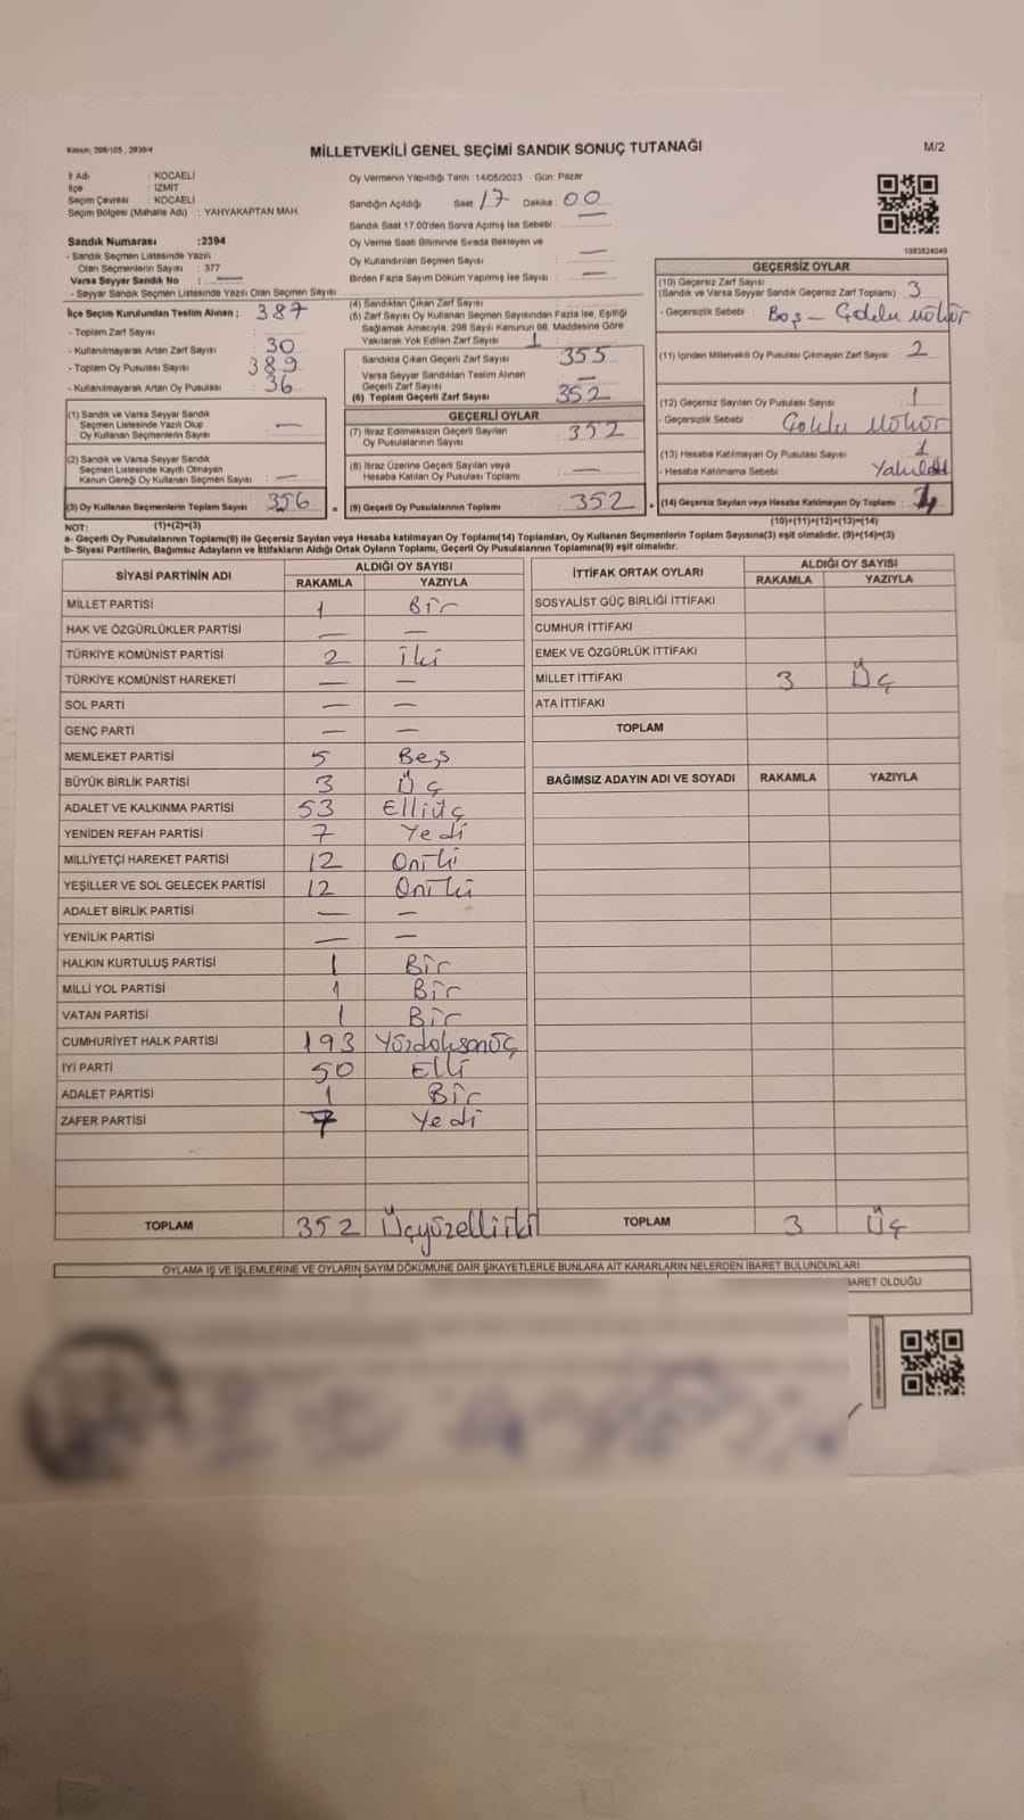 Kanun; 298/105 , 2939/4
MİLLETVEKİLİ GENEL SEÇİMİ SANDIK SONUÇ TUTANAĞI
M/2
İl Adı : KOCAELİ
İlçe : İZMİT
Seçim Çevresi : KOCAELİ
Seçim Bölgesi (Mahalle Adı) : YAHYAKAPTAN MAH.
Sandık Numarası :2394
- Sandık Seçmen Listesinde Yazılı
Olan Seçmenlerin Sayısı : 377
Varsa Seyyar Sandık No : —
- Seyyar Sandık Seçmen Listesinde Yazılı Olan Seçmen Sayısı
İlçe Seçim Kurulundan Teslim Alınan ; 387
- Toplam Zarf Sayısı
- Kullanılmayarak Artan Zarf Sayısı 30
- Toplam Oy Pusulası Sayısı 389
- Kullanılmayarak Artan Oy Pusulası 36
(1) Sandık ve Varsa Seyyar Sandık
Seçmen Listesinde Yazılı Olup
Oy Kullanan Seçmenlerin Sayısı —
(2) Sandık ve Varsa Seyyar Sandık
Seçmen Listesinde Kayıtlı Olmayan
Kanun Gereği Oy Kullanan Seçmen Sayısı : —
(3) Oy Kullanan Seçmenlerin Toplam Sayısı 356
Oy Vermenin Yapıldığı Tarih : 14/05/2023 Gün: Pazar
Sandığın Açıldığı Saat : 17 Dakika : 00
Sandık Saat 17.00'den Sonra Açılmış İse Sebebi: —
Oy Verme Saati Bitiminde Sırada Bekleyen ve
Oy Kullandırılan Seçmen Sayısı —
Birden Fazla Sayım Döküm Yapılmış İse Sayısı : —
(4) Sandıktan Çıkan Zarf Sayısı
(5) Zarf Sayısı Oy Kullanan Seçmen Sayısından Fazla İse, Eşitliği
Sağlamak Amacıyla, 298 Sayılı Kanunun 98. Maddesine Göre
Yakılarak Yok Edilen Zarf Sayısı 1
Sandıkta Çıkan Geçerli Zarf Sayısı 355
Varsa Seyyar Sandıktan Teslim Alınan
Geçerli Zarf Sayısı —
(6) Toplam Geçerli Zarf Sayısı 352
GEÇERLİ OYLAR
(7) İtiraz Edilmeksizin Geçerli Sayılan
Oy Pusulalarının Sayısı 352
(8) İtiraz Üzerine Geçerli Sayılan veya
Hesaba Katılan Oy Pusulası Toplamı —
(9) Geçerli Oy Pusulalarının Toplamı 352
1083824049
GEÇERSİZ OYLAR
(10) Geçersiz Zarf Sayısı
(Sandık ve Varsa Seyyar Sandık Geçersiz Zarf Toplamı) 3
- Geçersizlik Sebebi : Boş –
(11) İçinden Milletvekili Oy Pusulası Çıkmayan Zarf Sayısı 2
(12) Geçersiz Sayılan Oy Pusulası Sayısı 1
- Geçersizlik Sebebi
(13) Hesaba Katılmayan Oy Pusulası Sayısı 1
- Hesaba Katılmama Sebebi
(14) Geçersiz Sayılan veya Hesaba Katılmayan Oy Toplamı :
NOT: (1)+(2)=(3)
(10)+(11)+(12)+(13)=(14)
a- Geçerli Oy Pusulalarının Toplamı(9) ile Geçersiz Sayılan veya Hesaba katılmayan Oy Toplamı(14) Toplamları, Oy Kullanan Seçmenlerin Toplam Sayısına(3) eşit olmalıdır. (9)+(14)=(3)
b- Siyasi Partilerin, Bağımsız Adayların ve İttifakların Aldığı Ortak Oyların Toplamı, Geçerli Oy Pusulalarının Toplamına(9) eşit olmalıdır.
SİYASİ PARTİNİN ADI
ALDIĞI OY SAYISI
RAKAMLA YAZIYLA
MİLLET PARTİSİ 1 Bir
HAK VE ÖZGÜRLÜKLER PARTİSİ — —
TÜRKİYE KOMÜNİST PARTİSİ 2 İki
TÜRKİYE KOMÜNİST HAREKETİ — —
SOL PARTİ — —
GENÇ PARTİ — —
MEMLEKET PARTİSİ 5 Beş
BÜYÜK BİRLİK PARTİSİ 3 Üç
ADALET VE KALKINMA PARTİSİ 53 Elliüç
YENİDEN REFAH PARTİSİ 7 Yedi
MİLLİYETÇİ HAREKET PARTİSİ 12 Oniki
YEŞİLLER VE SOL GELECEK PARTİSİ 12 Oniki
ADALET BİRLİK PARTİSİ — —
YENİLİK PARTİSİ — —
HALKIN KURTULUŞ PARTİSİ 1 Bir
MİLLİ YOL PARTİSİ 1 Bir
VATAN PARTİSİ 1 Bir
CUMHURİYET HALK PARTİSİ 193 Yüzdoksanüç
İYİ PARTİ 50 Elli
ADALET PARTİSİ 1 Bir
ZAFER PARTİSİ 7 Yedi
TOPLAM 352 Üçyüzelliiki
İTTİFAK ORTAK OYLARI
ALDIĞI OY SAYISI
RAKAMLA YAZIYLA
SOSYALİST GÜÇ BİRLİĞİ İTTİFAKI
CUMHUR İTTİFAKI
EMEK VE ÖZGÜRLÜK İTTİFAKI
MİLLET İTTİFAKI 3 Üç
ATA İTTİFAKI
TOPLAM
BAĞIMSIZ ADAYIN ADI VE SOYADI RAKAMLA YAZIYLA
TOPLAM 3 Üç
OYLAMA İŞ VE İŞLEMLERİNE VE OYLARIN SAYIM DÖKÜMÜNE DAİR ŞİKAYETLERLE BUNLARA AİT KARARLARIN NELERDEN İBARET BULUNDUKLARI
BARET OLDUĞU